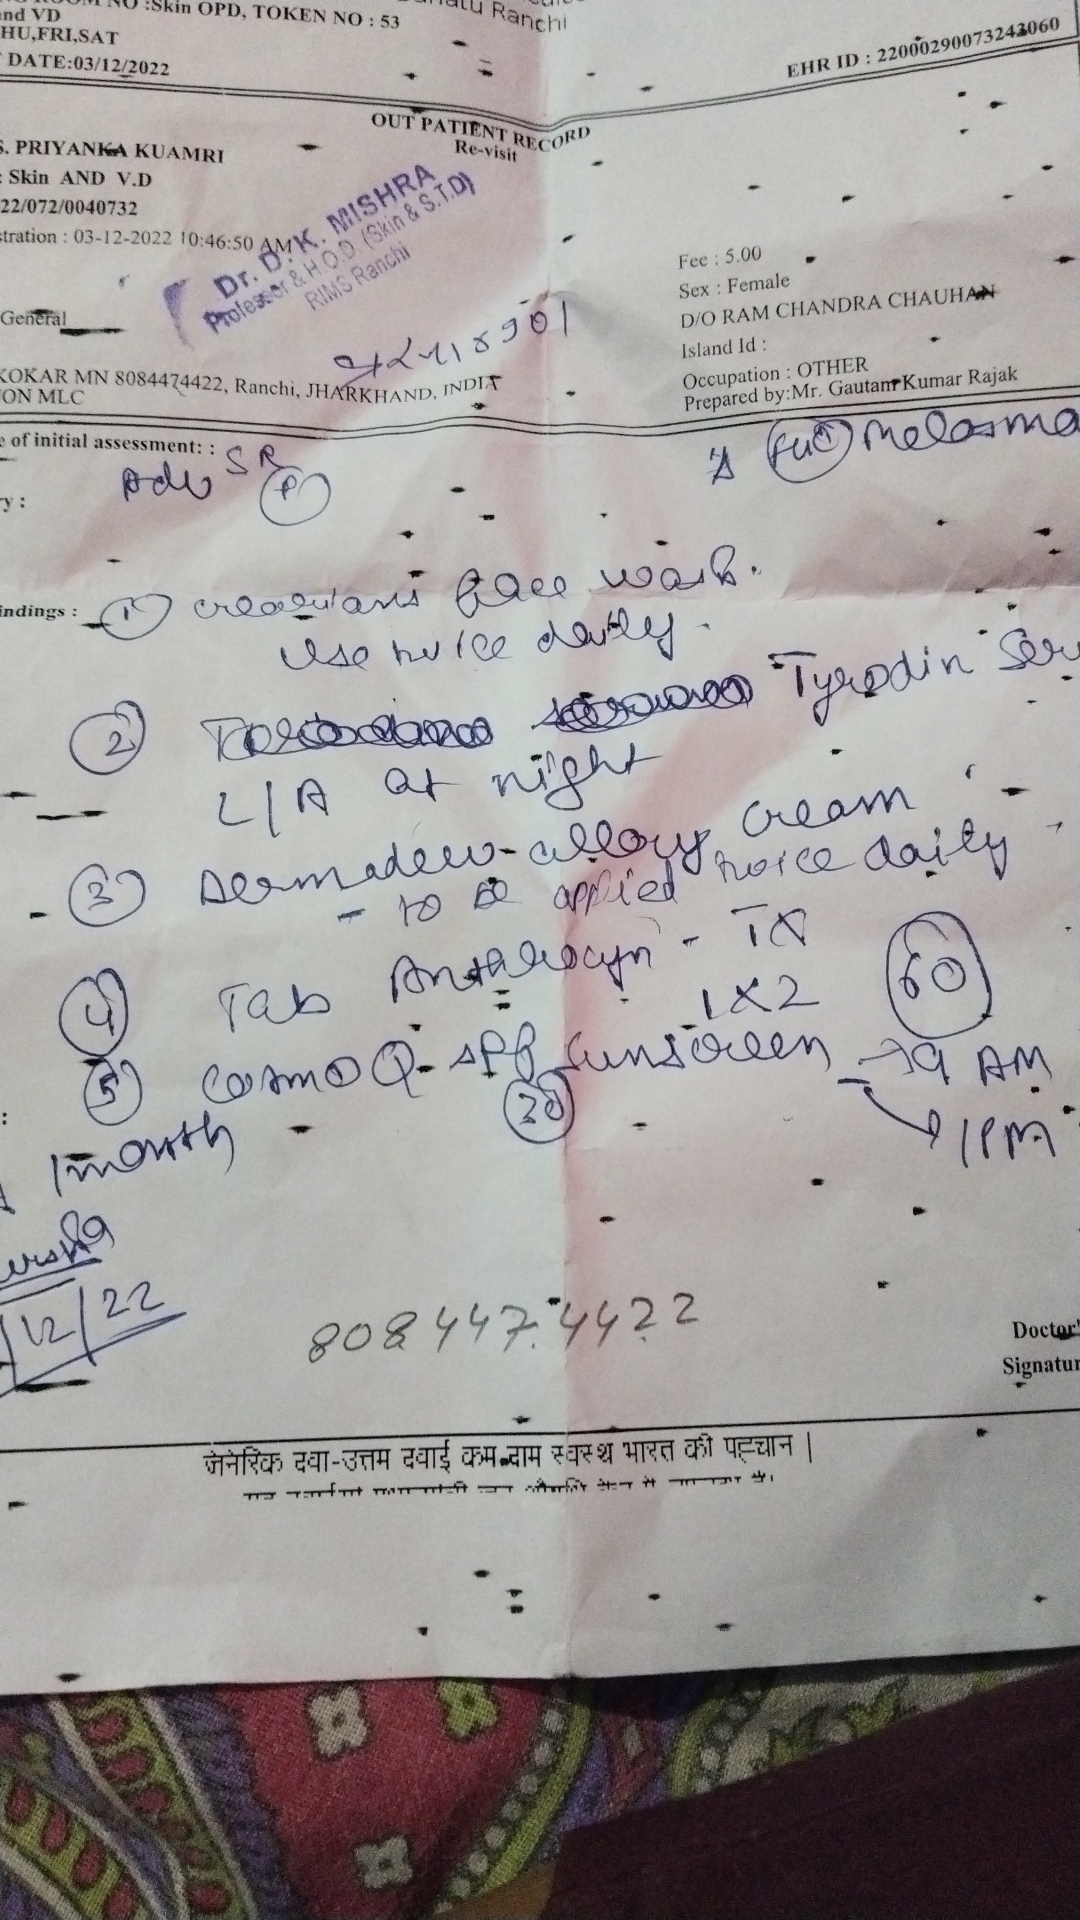 NO :Skin OPD, TOKEN NO : 53
Ranchi
nd VD
HU,FRI,SAT
DATE:03/12/2022
EHR ID : 22000290073243060
OUT PATIENT RECORD
Re-visit
S. PRIYANKA KUAMRI
: Skin AND V.D
22/072/0040732
stration : 03-12-2022 10:46:50 AM
Dr. D. K. MISHRA
Professor & H.O.D (Skin & S.T.D)
RIMS Ranchi
Fee : 5.00
Sex : Female
D/O RAM CHANDRA CHAUHAN
Island Id :
Occupation : OTHER
Prepared by:Mr. Gautam Kumar Rajak
General
KOKAR MN 8084474422, Ranchi, JHARKHAND, INDIA
ON MLC
e of initial assessment: :
Melasma
Adv SR
P
y :
indings :
1) face wash.
Use twice daily.
2) Tyrodin Ser
L/A at night
3) Dermadew-allory cream
- to be applied twice daily
4) Tab - TX
1X2 60
5) Cosmo Q- SPF sunscreen → 9 AM
30 → 1PM
1 month
/12/22
808447.4422
Doctor'
Signatur
जेनेरिक दवा-उत्तम दवाई कम दाम स्वस्थ भारत की पहचान |